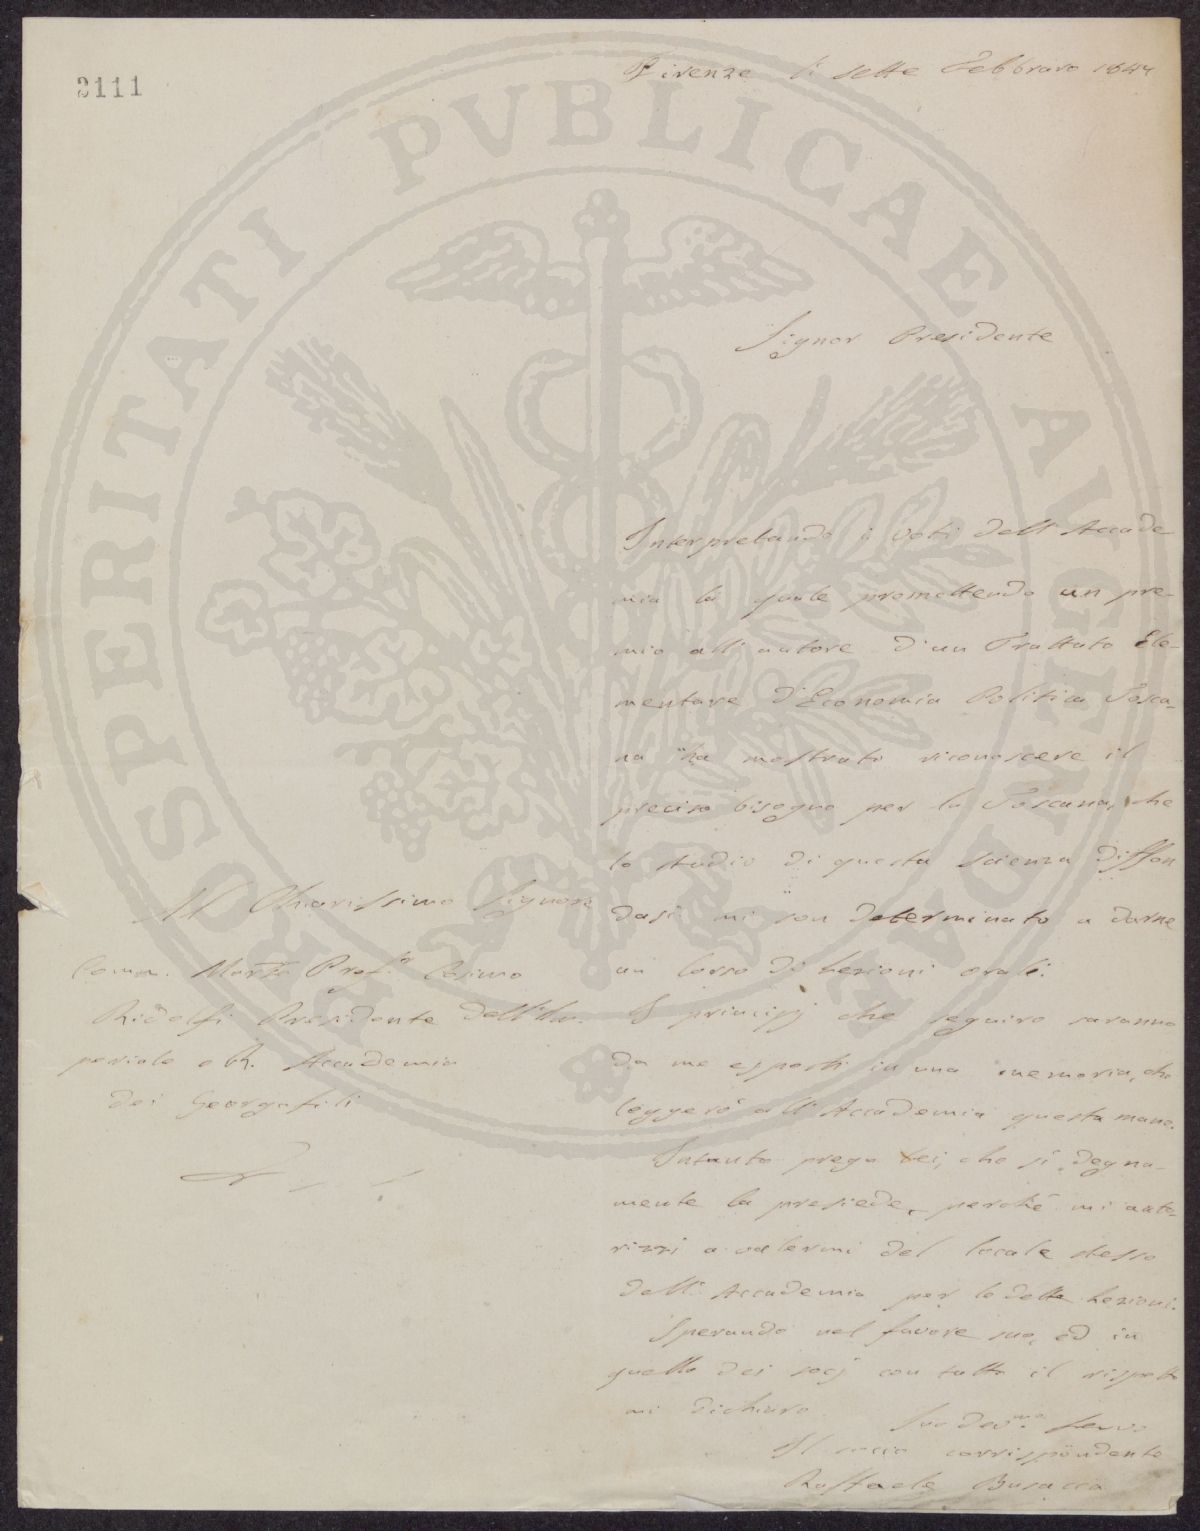 3111
Firenze li sette Febbraro 1847
Signor Presidente
Interpretando i voti dell'Accade
mia la quale promettendo un pre-
mio all'autore d'un Trattato Ele-
mentare d'Economia Politica Tosca-
na ha mostrato riconoscere il
preciso bisogno per la Toscana, che
lo studio di questa scienza diffon
dasi mi son determinato a darne
un Corso di Lezioni orali.
I principj che seguirò saranno
da me esposti in una memoria, che
leggerò all'Accademia questa mane.
Intanto prego Lei, che sì degna-
mente la presiede, perchè mi auto-
rizzi a valermi del locale stesso
dell'Accademia per le dette Lezioni.
Sperando nel favore suo, ed in
quello dei socj con tutto il rispetto
mi dichiaro
Suo dev.mo Servo
Il socio corrispondente
Raffaele Busacca
Al Chiarissimo Signore
Comm. March. Prof.r Cosimo
Ridolfi Presidente dell'Im-
periale e R. Accademia
dei Georgofili
PROSPERITATI PVBLICAE AVGENDAE